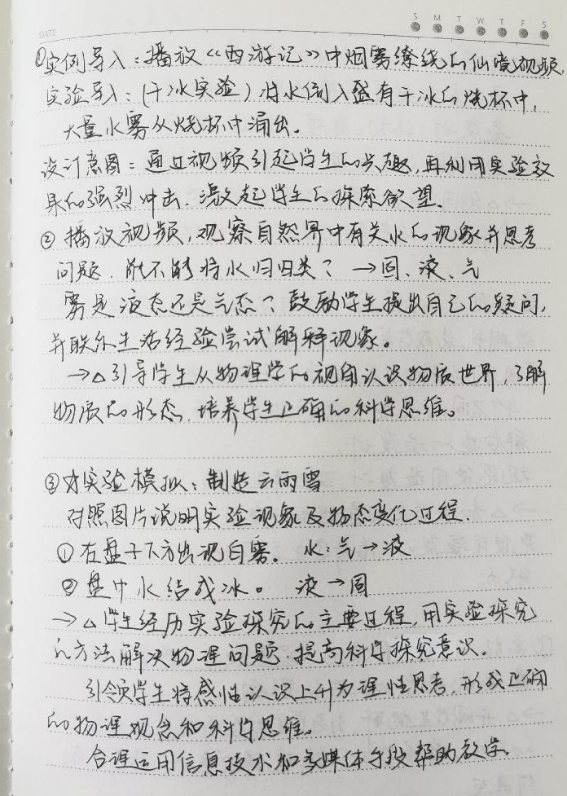 DATE
S M T W T F S
①实例导入：播放《西游记》中烟雾缭绕的仙境视频，
实验导入：(干冰实验）将水倒入盛有干冰的烧杯中，
大量水雾从烧杯中涌出。
设计意图：通过视频引起学生的兴趣，再利用实验效
果的强烈冲击，激起学生的探索欲望。
②播放视频，观察自然界中有关水的现象并思考
问题．能不能将水归归类？→固、液、气
雾是液态还是气态？鼓励学生提出自己的疑问，
并联系生活经验尝试解释现象。
→△引导学生从物理学的视角认识物质世界，了解
物质的形态，培养学生正确的科学思维。
③对实验模拟：制造云雨雪
对照图片说明实验现象及物态变化过程．
①在盘子下方出现白雾． 水：气→液
②盘中水结成冰。 液→固
→△学生经历实验探究的主要过程，用实验探究
的方法解决物理问题．提高科学探究意识．
引领学生将感性认识上升为理性思考，形成正确
的物理观念和科学思维。
合理运用信息技术和多媒体手段帮助教学．